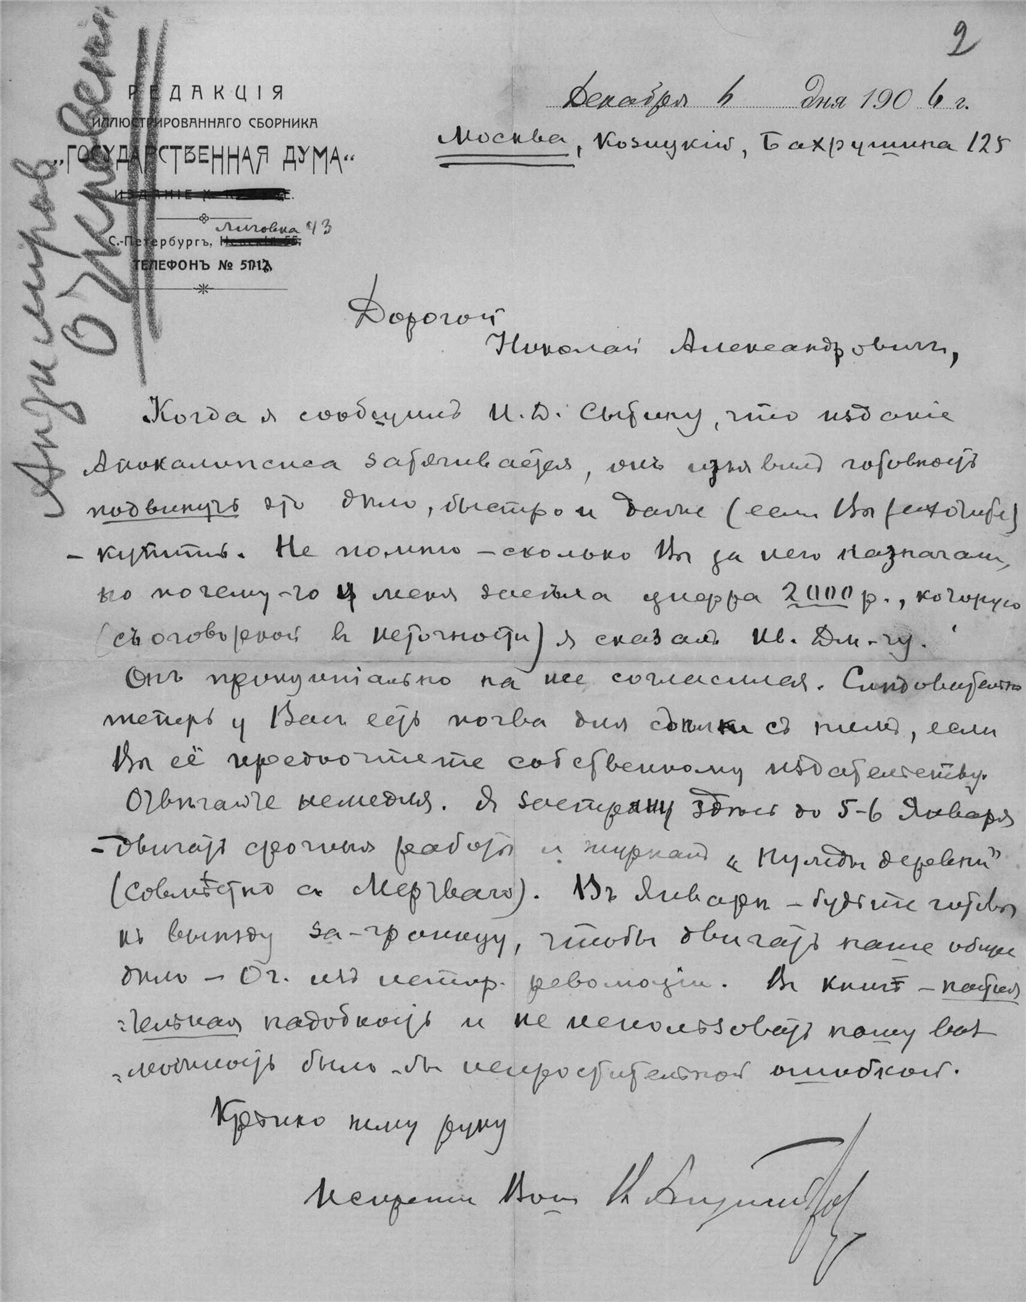 2
Анзимиров
О Укровении
РЕДАКЦІЯ
ИЛЛЮСТРИРОВАННАГО СБОРНИКА
„ГОСУДАРСТВЕННАЯ ДУМА“
ИЗДАНІЕ
Лиговка 43
С.-Петербургъ,
ТЕЛЕФОНЪ №
Декабря 6 дня 1906 г.
Москва, Козицкій, Бахрушина 125
Дорогой
Николай Александровичъ,
Когда я сообщилъ И. Д. Сытину, что изданіе
Апокалипсиса затягивается, онъ изъявилъ готовность
подвинуть это дѣло, быстро и даже (если Вы захотите)
– купить. Не помню – сколько Вы за него назначали,
но почему-то у меня засѣла цифра 2000 р., которую
(съ оговоркой въ неточности) я сказалъ Ив. Дм-чу.
Онъ принципіально на нее согласился. Слѣдовательно
теперь у Васъ есть почва для сдѣлки съ нимъ, если
Вы её предпочтете собственному издательству.
Отвѣчайте немедля. Я застряну здѣсь до 5-6 Января
– двигать срочныя работы и журналъ „Нужды деревни“
(совмѣстно съ Мертваго). Въ Январѣ – будьте готовы
къ выѣзду за-границу, чтобы двигать наше общее
дѣло – Оч. изъ истор. революціи. Въ книгѣ – настоя
-тельная надобность и не использовать нашу воз
-можность было-бы непростительной ошибкой.
Крѣпко жму руку
Искренно Вашъ